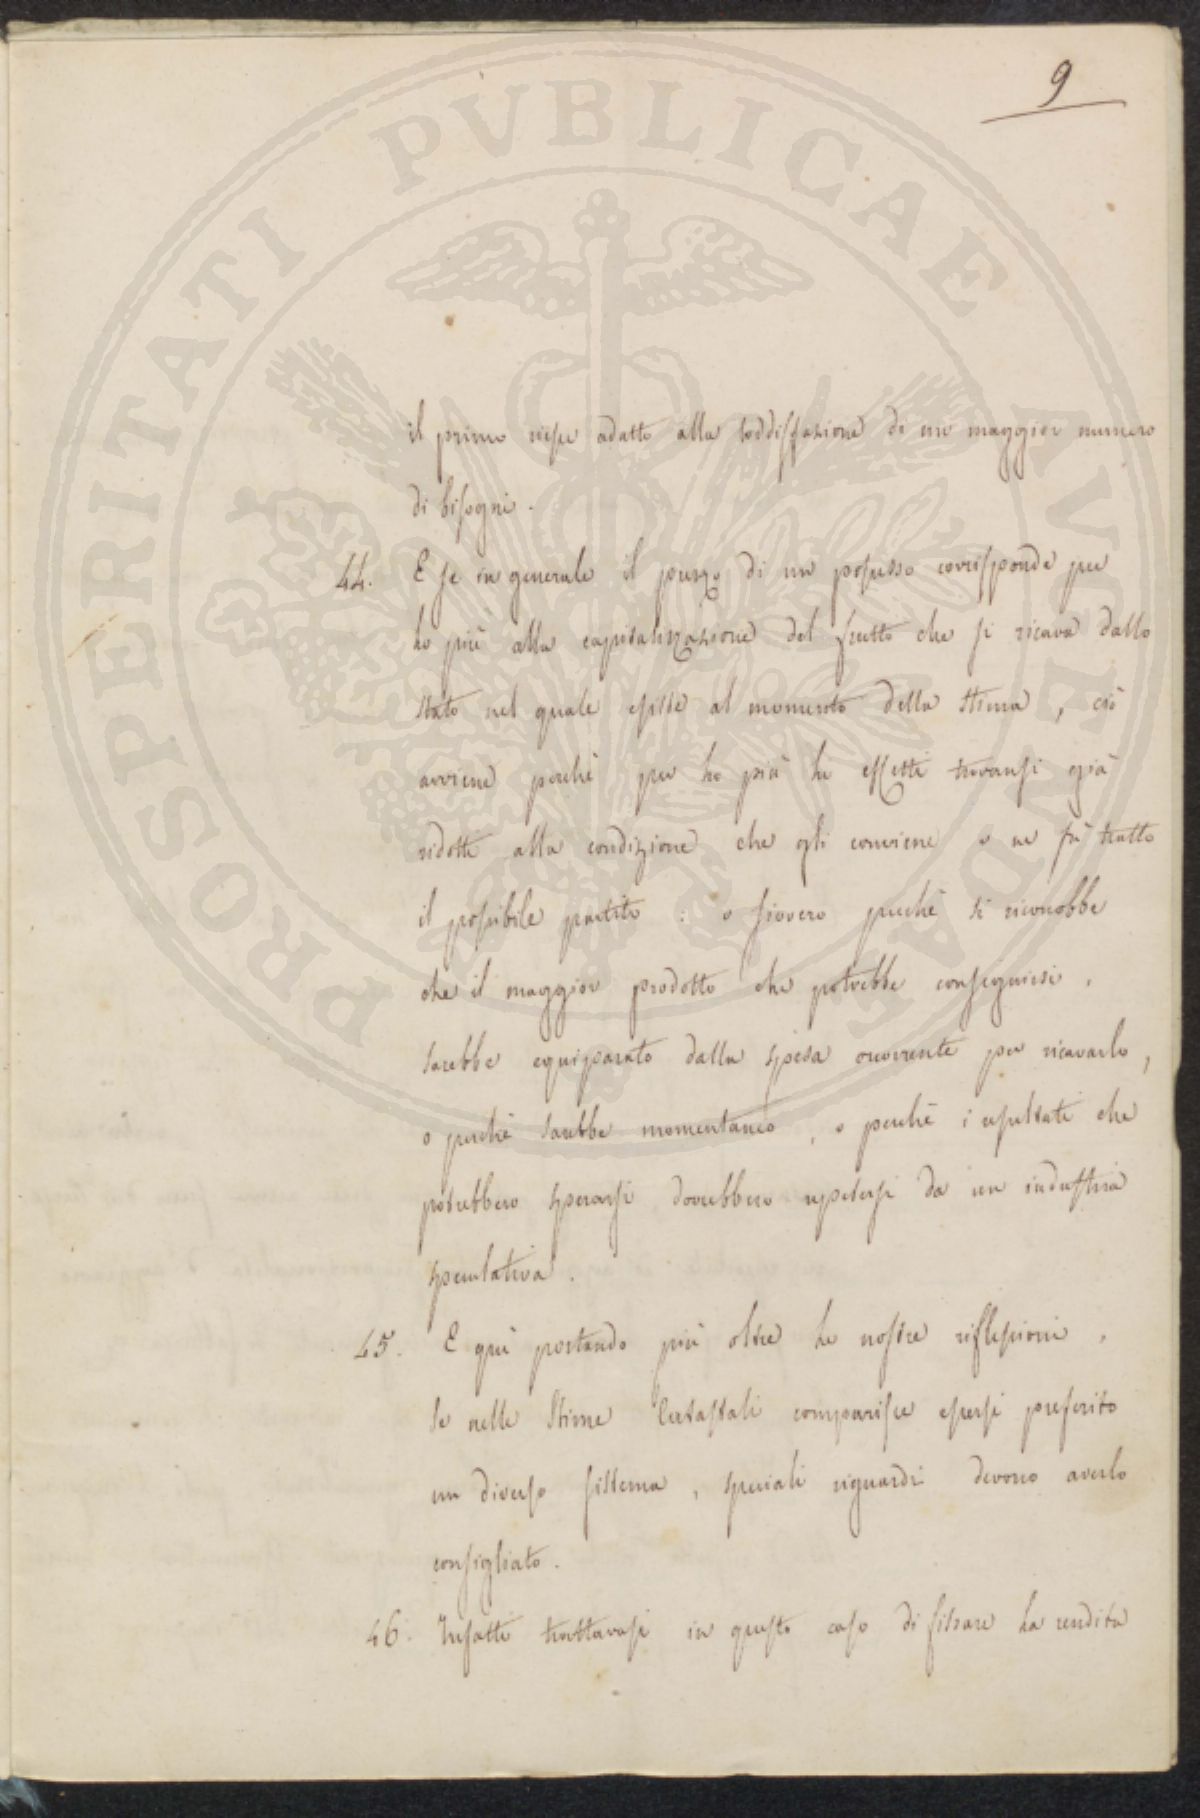 9
PROSPERITATI PVBLICAE AVGENDAE
il primo riesce adatto alla soddisfazione di un maggior numero
di bisogni.
44. E se in generale il prezzo di un possesso corrisponde per
lo più alla capitalizzazione del frutto che si ricava dallo
stato nel quale esiste al momento della stima, ciò
avviene perchè per lo più li effetti trovansi già
ridotti alla condizione che gli conviene o ne fù tratto
il possibile partito : o sivvero perchè si riconobbe
che il maggior prodotto che potrebbe conseguirsi,
sarebbe equiparato dalla spesa occorrente per ricavarlo,
o perchè sarebbe momentaneo, o perchè i resultati che
potrebbero sperarsi dovrebbero ripetersi da un industria
speculativa.
45. E quì portando più oltre le nostre riflessioni,
se nelle Stime Catastali comparisce essersi preferito
un diverso sistema, speciali riguardi devono averlo
consigliato.
46. Infatti trattavasi in questo caso di fissare la rendita